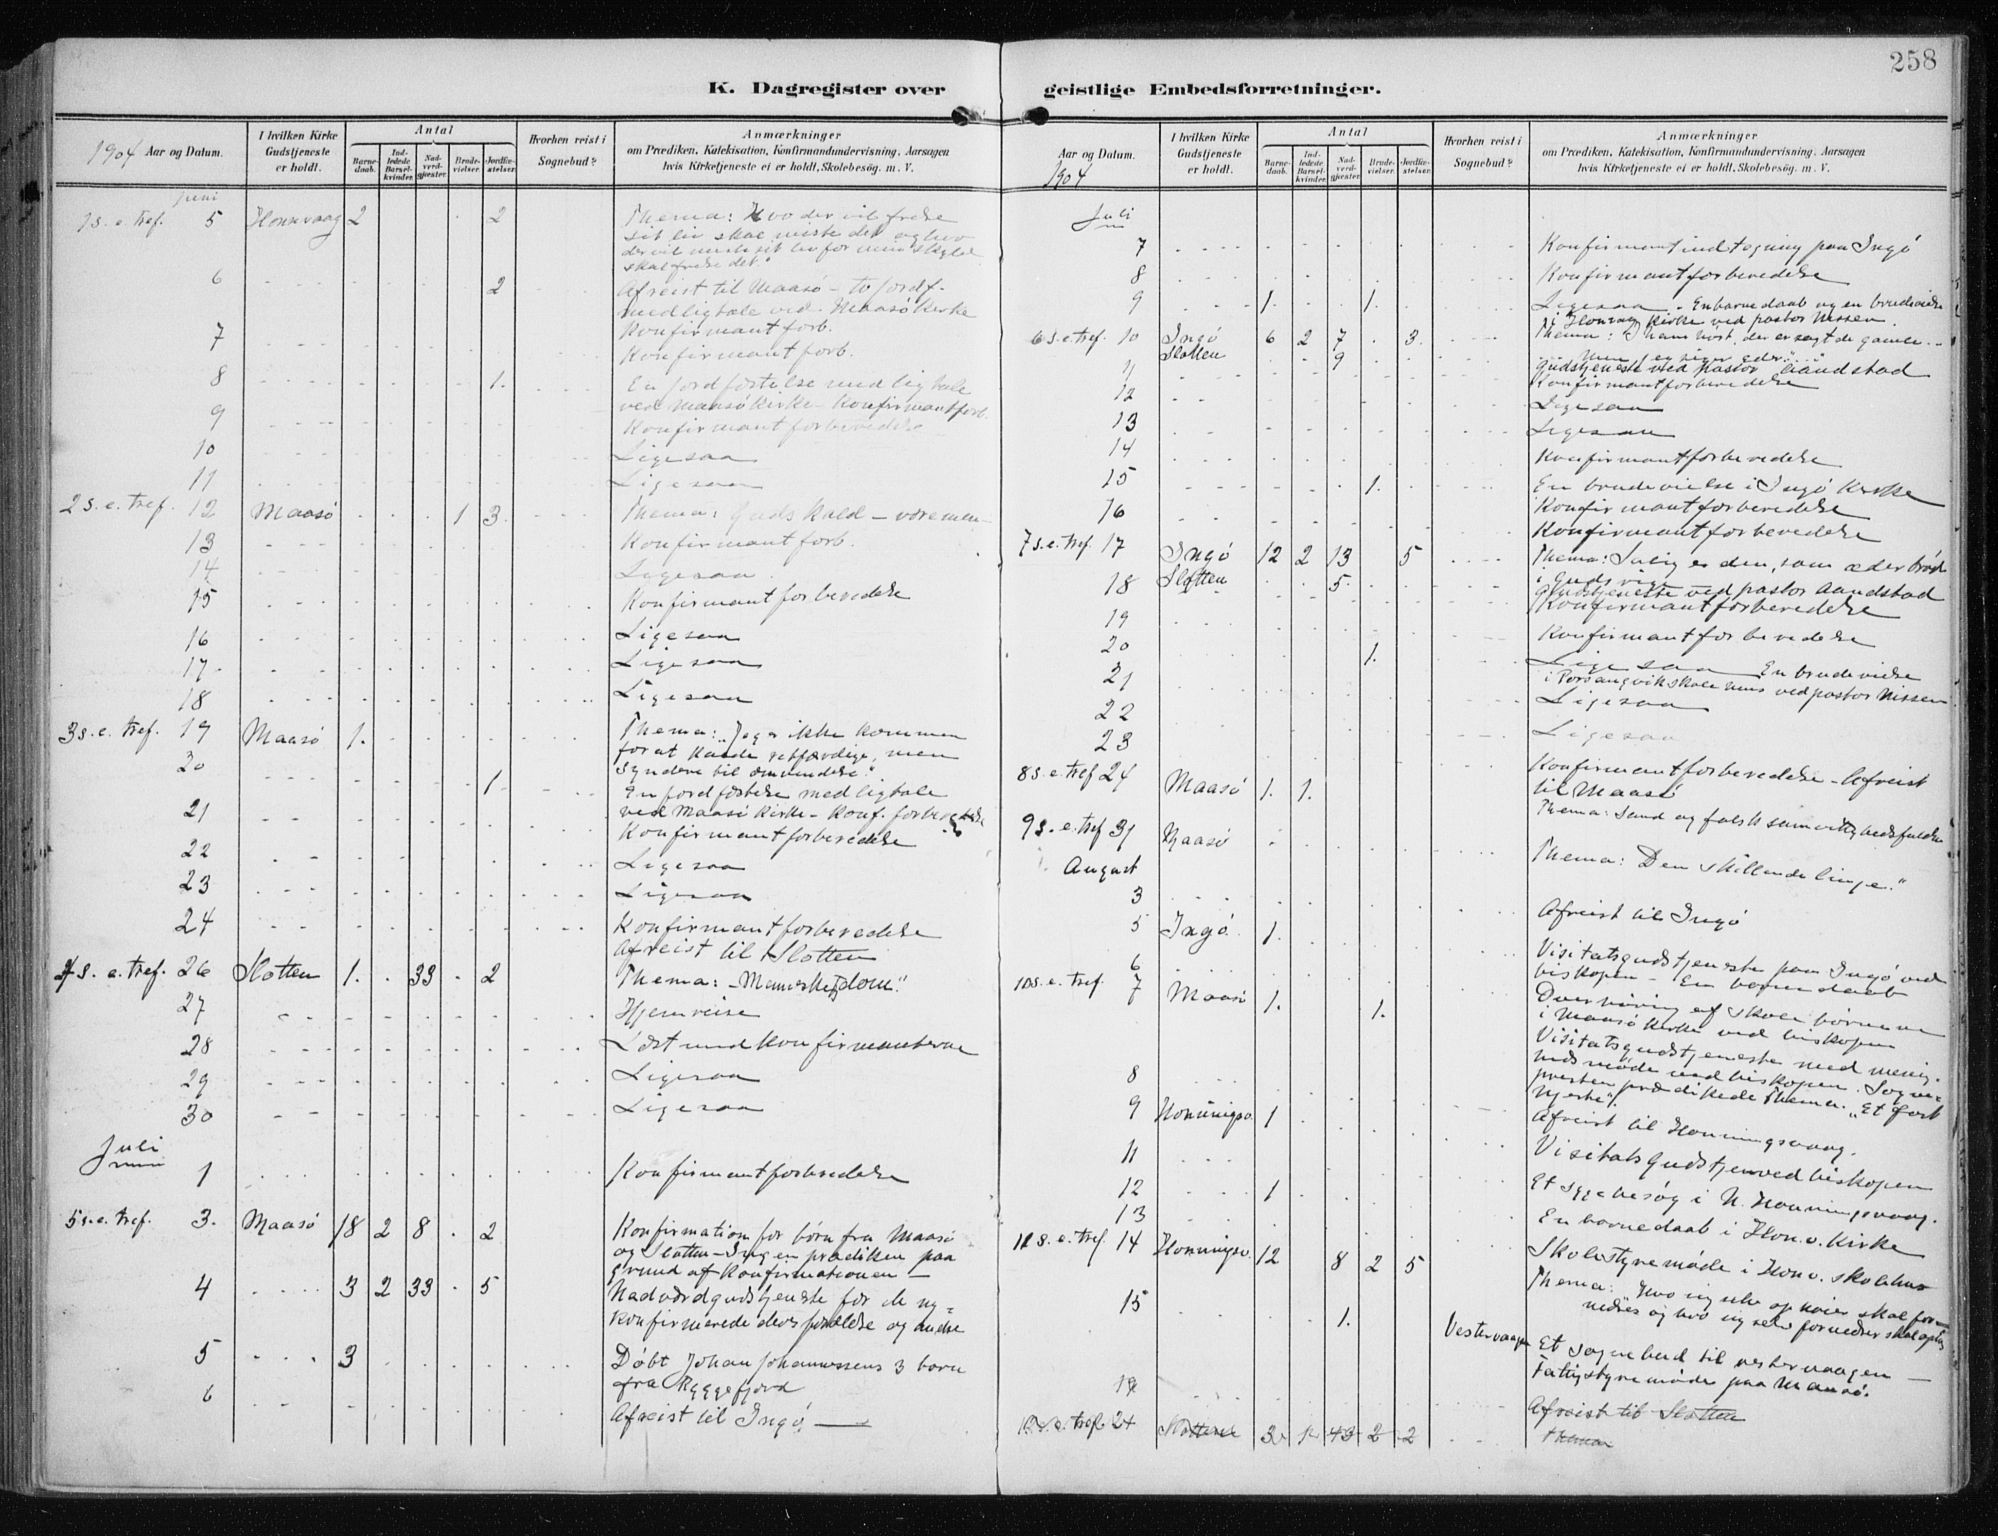 258
K. Dagregister over
geistlige Embedsforretninger.
1904 Aar og Datum.
I hvilken Kirke Gudstjeneste er holdt.
Antal
Barnedaab.
Indledede Barselkvinder.
Nadverdgjester.
Brudevielser.
Jordfæstelser.
Hvorhen reist i Sognebud?
Anmærkninger
om Prædiken, Katekisation, Konfirmandundervisning, Aarsagen
hvis Kirketjeneste ei er holdt, Skolebesøg. m. V.
juni
1 s. e. tref. 5 Honnvaag 2 2 Thema: Hvo der vil frelse
sit liv skal miste det og hvo
der vil miste sit liv for min skyld
skal frelse det"
6 2 Afreist til Maasö - to jordf.
med ligtale ved Maasö Kirke
Konfirmantforb.
7 Konfirmantforb.
8 1. En jordfæstelse med ligtale
ved Maasö kirke - Konfirmantforb.
9 Konfirmantforberedelse
10 Ligesaa
11 Ligesaa
2 s. e. tref. 12 Maasö 1 3. Thema: Guds kald -
13 Konfirmantforb.
14 Ligesaa.
15 Konfirmantforberedelse
16 Ligesaa
17 Ligesaa
18 Ligesaa
3 s. e. tref. 19 Maasö 1. Thema: "Jeg er ikke kommen
for at kalde retfærdige, men
syndere til omvendelse."
20 1 En jordfæstelse med ligtale
ved Maasö Kirke - Konf. forberedelse
21 Konfirmantforberedelse
22 Ligesaa
23 Ligesaa
24 Konfirmantforberedelse
Afreist til Slotten
4 s. e. tref. 26 Slotten 1. 33 2 Thema: - Menneskedom"
27 Hjemreise
28 Læst med konfirmanterne
29 Ligesaa
30 Ligesaa
Juli
1 Konfirmantforberedelse
5 s. e. tref. 3. Maasö 18 2 8 2 Konfirmation for börn fra Maasö
og Slotten - Ingen prædiken paa
grund af konfirmationen -
4 3 2 33 5 Nadverdgudstjeneste for de ny=
konfirmerede deres forældre og andre
5 3 Döbt Johan Johannessens 3 barn
fra Ryggefjord
6 Afreist til Ingö.
Aar og Datum.
1904
I hvilken Kirke Gudstjeneste er holdt.
Antal
Barnedaab.
Indledede Barselkvinder.
Nadverdgjester.
Brudevielser.
Jordfæstelser.
Hvorhen reist i Sognebud?
Anmærkninger
om Prædiken, Katekisation, Konfirmandundervisning, Aarsagen
hvis Kirketjeneste ei er holdt, Skolebesøg. m. V.
Juli
7 Konfirmantindtegning paa Ingö
8 Konfirmantforberedelse
9 1. 1. Ligesaa - En barnedaab og en brudevielse
i Honvaag Kirke ved pastor Nissen.
6 s. e. tref. 10 Ingö 6 2 7 3. Thema: I have hört, der er sagt de gamle...
Men jeg siger eder"...
Slotten 9 Gudstjeneste ved pastor Aandstad
11 Konfirmantforberedelse
12 Ligesaa
13 Ligesaa
14 Konfirmantforberedelse
15 1. En brudevielse i Ingö Kirke
16 Konfirmantforberedelse
Konfirmantforberedelse
7 s. e. tref. 17 Ingö 12 2 13 5 Thema: Salig er den, som æder bröd
i Guds rige
18 Slotten 5. Gudstjeneste ved pastor Aandstad
Konfirmantforberedelse
19 Konfirmantforberedelse
20 1. Ligesaa En brudevielse
i Porsangvik skolehus ved pastor Nissen
21 Ligesaa
22 Ligesaa
23 Konfirmantforberedelse - Afreist
til Maasö
8 s. e. tref 24 Maasö 1. 1. Thema: Sand og falsk
9 s. e. tref 31 Maasö Thema: Den skillende linje."
August
3 Afreist til Ingö
5 Ingö 1. Visitatsgudstjeneste paa Ingö ved
biskopen - En barnedaab
6 Overhöring af skolebörnene
i Maasö kirke ved biskopen
10 s. e. tref. 7 Maasö 1. 1. Visitatsgudstjeneste med menig-
hedsmöde ved biskopen. Sogne-
presten prædikede Thema: "Et fast
hjerte".
8 Afreist til Honningsvaag.
9 Honningsv. 1 Visitatsgudstjen ved biskopen
11 Et sygebesög i N. Honningsvaag.
12 1 En barnedaab i Hon.v. Kirke
13 Skolestyremöde i Honv. skolehus
11 s. e. tref 14 Honningsv. 12 8 2 5 Thema: "Hvo sig selv ophöier skal for-
nedres og hvo sig selv fornedrer skal
15 1. Vestervaagen Et sognebud til vestervaagen -
Fattigstyremöde paa Maasö.
19 Afreist til Slotten
12 s. e. tref. 24 Slotten 3 1 43 2 2 Thema